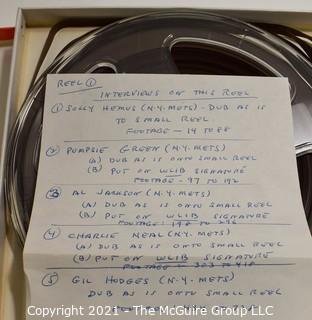 REEL ①
INTERVIEWS ON THIS REEL
① SOLLY HEMUS (N.Y. METS) - DUB AS IS
TO SMALL REEL
FOOTAGE - 14 TO 88
② PUMPSIE GREEN (N.Y. METS)
(A) DUB AS IS ONTO SMALL REEL
(B) PUT ON WLIB SIGNATURE
FOOTAGE - 97 TO 192
③ AL JACKSON (N.Y. METS)
(A) DUB AS IS ONTO SMALL REEL
(B) PUT ON WLIB SIGNATURE
FOOTAGE - 198 TO
④ CHARLIE NEAL (N.Y. METS)
(A) DUB AS IS ONTO SMALL REEL
(B) PUT ON WLIB SIGNATURE
FOOTAGE - 303 TO 418
⑤ GIL HODGES (N.Y. METS)
DUB AS IS ONTO SMALL REEL
Copyright 2021 - The McGuire Group LLC